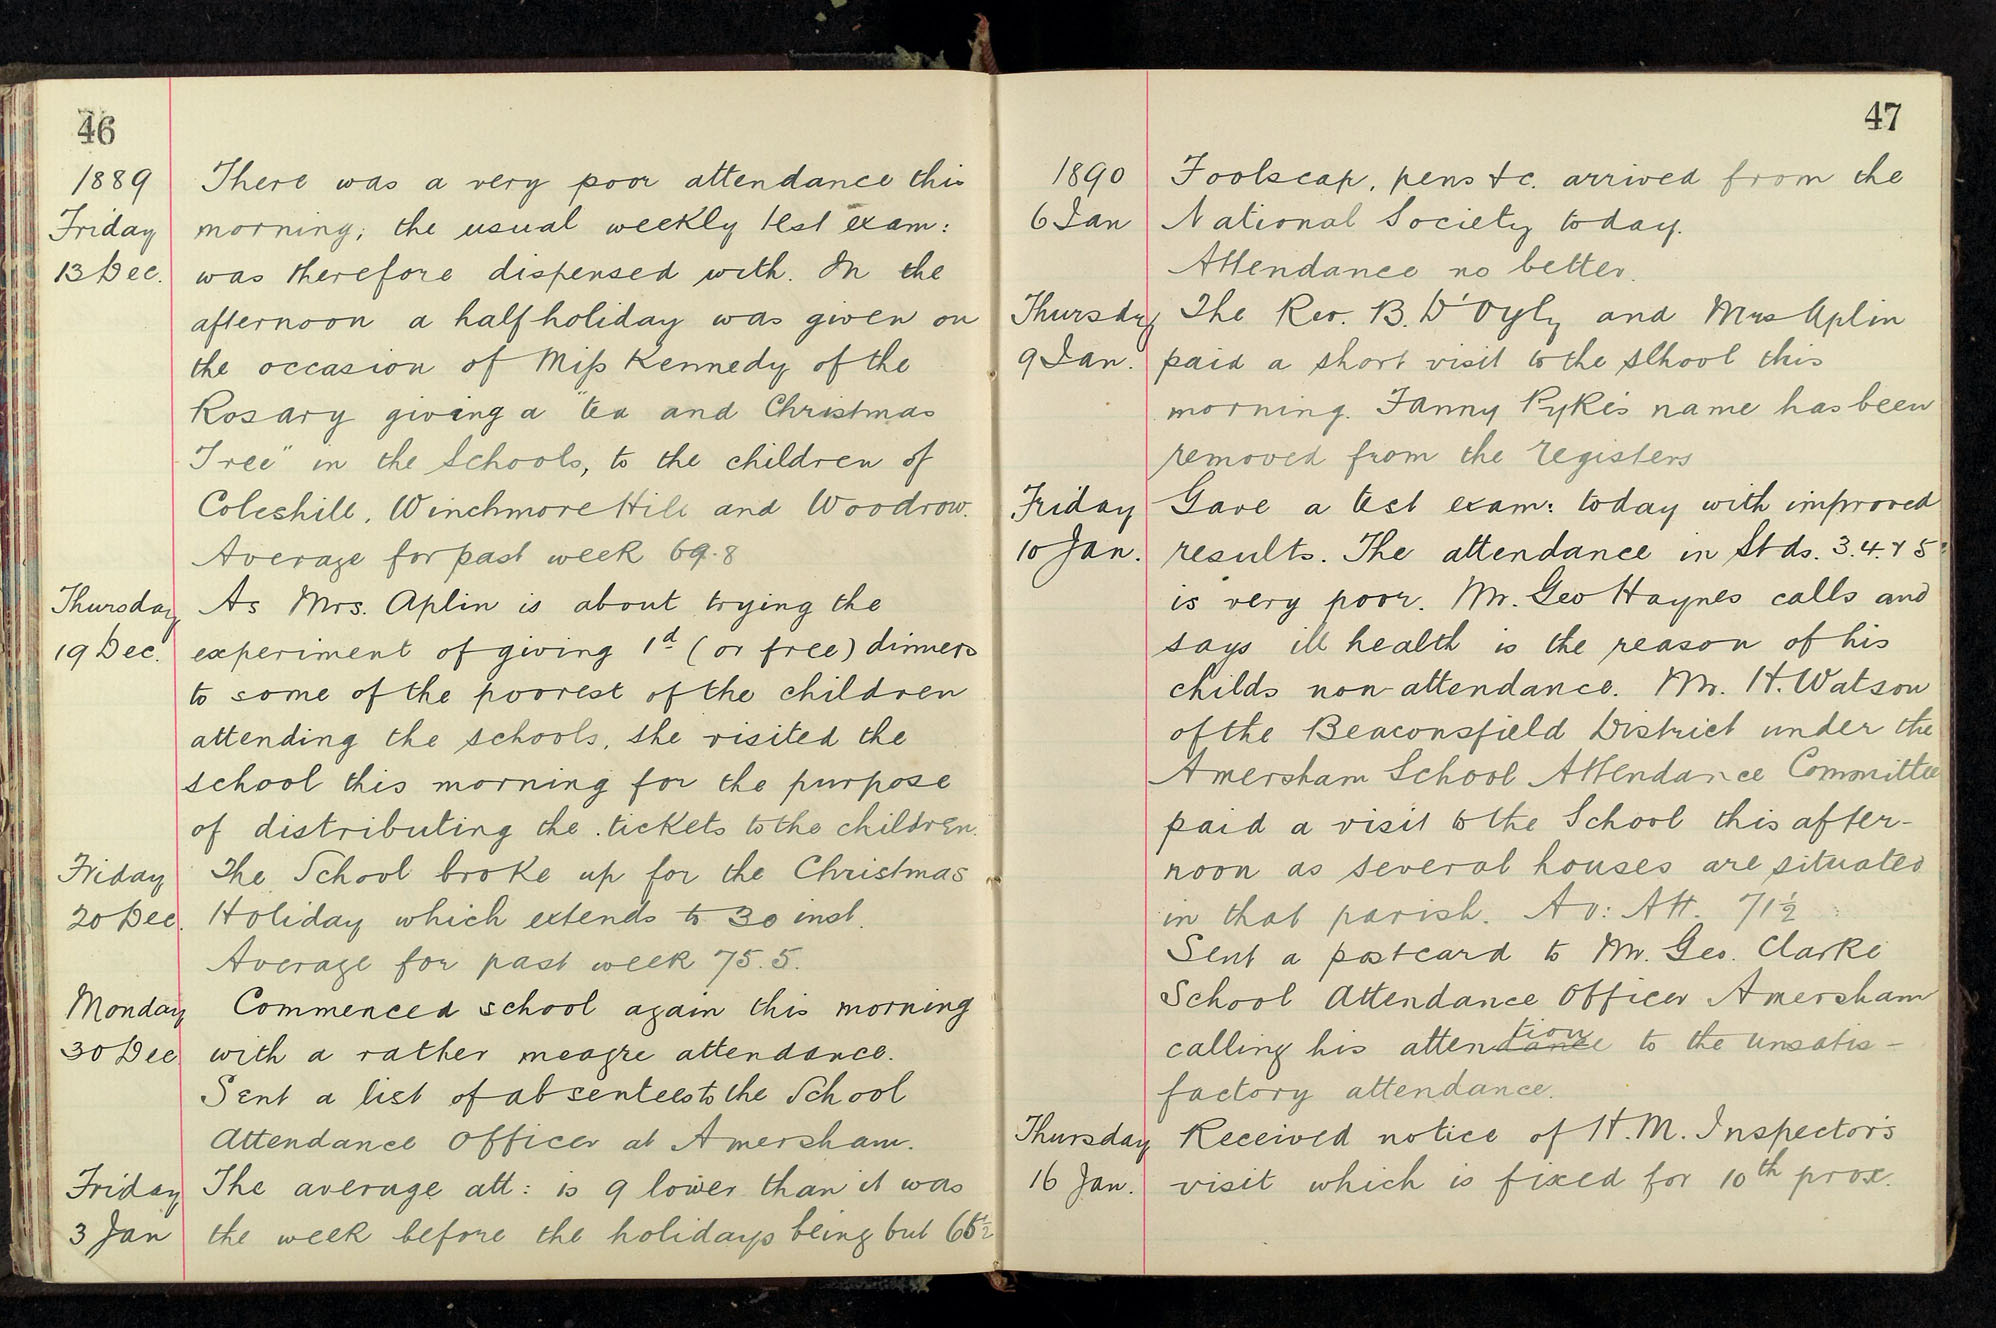 46
1889 There was a very poor attendance this
Friday morning; the usual weekly test exam:
13 Dec. was therefore dispensed with. In the
afternoon a half holiday was given on
the occasion of Miss Kennedy of the
Rosary giving a "tea and Christmas
Tree" in the Schools, to the children of
Coleshill, Winchmore Hill and Woodrow.
Average for past week 69.8
Thursday As Mrs. Aplin is about trying the
19 Dec. experiment of giving 1d (or free) dinners
to some of the poorest of the children
attending the schools, she visited the
school this morning for the purpose
of distributing the tickets to the children.
Friday The School broke up for the Christmas
20 Dec. Holiday which extends to 30 inst.
Average for past week 75.5.
Monday Commenced school again this morning
30 Dec with a rather meagre attendance.
Sent a list of absentees to the School
Attendance Officer at Amersham.
Friday The average att: is 9 lower than it was
3 Jan the week before the holidays being but
47
1890 Foolscap, pens &c. arrived from the
6 Jan National Society today.
Attendance no better.
Thursday The Rev. B. D'Oyly and Mrs Aplin
9 Jan. paid a short visit to the school this
morning. Fanny Pyke's name has been
removed from the registers
Friday Gave a test exam: today with improved
10 Jan. results. The attendance in Stds. 3.4. & 5
is very poor. Mr. Geo Haynes calls and
says ill health is the reason of his
childs non-attendance. Mr. H. Watson
of the Beaconsfield District under the
Amersham School Attendance Committee
paid a visit to the School this after-
noon as several houses are situated
in that parish. Av: Att. 71½
Sent a postcard to Mr. Geo. Clarke
School Attendance Officer Amersham
calling his attention to the unsatis-
factory attendance.
Thursday Received notice of H.M. Inspector's
16 Jan. visit which is fixed for 10th prox.